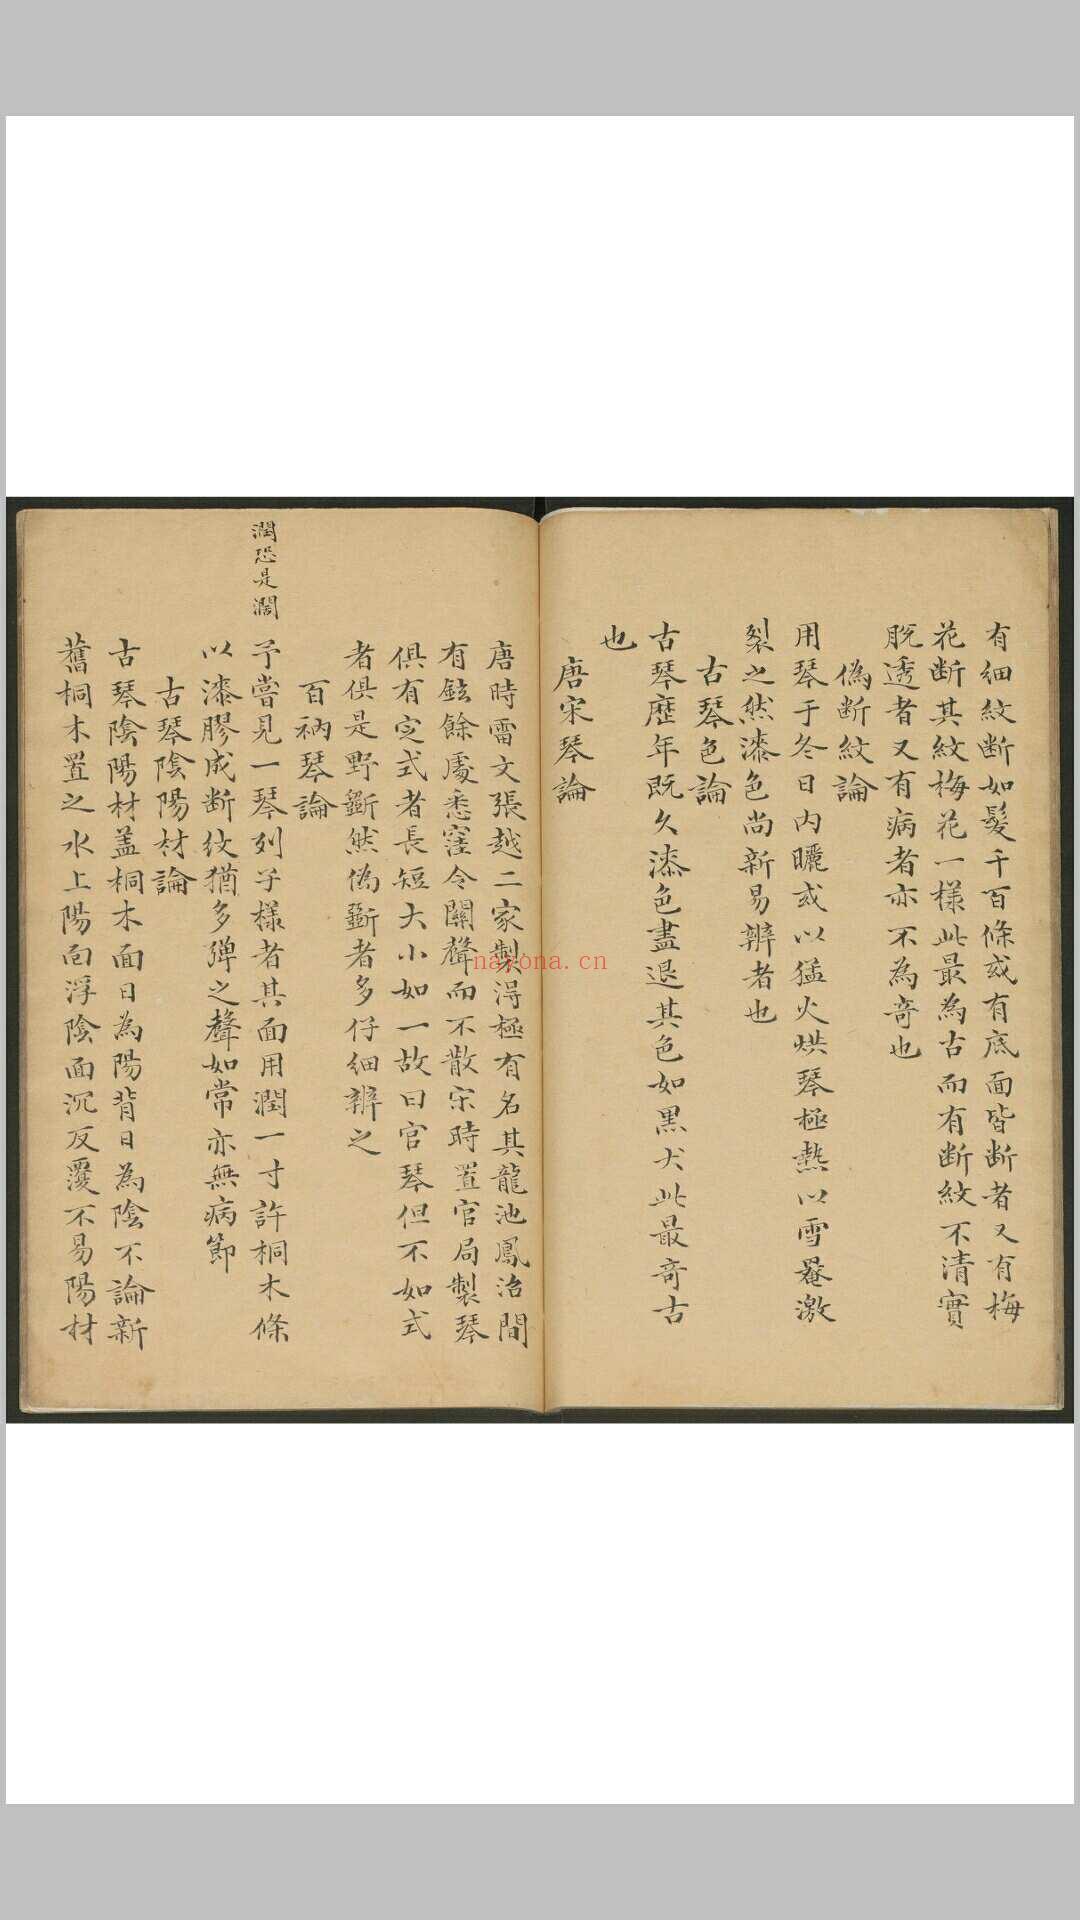 有細紋断如髮千百條或有底面皆断者又有梅
花断其紋梅花一樣此最為古而有断紋不清實
脫透者又有病者亦不為竒也
偽断紋論
用琴于冬日内曬或以猛火烘琴極熱以雪罨激
裂之然漆色尚新易辨者也
古琴色論
古琴歷年既久漆色盡退其色如黑犬此最竒古
也
唐宋琴論
唐時雷文張越二家製淂極有名其龍池鳳沿間
有鉉餘處悉窪令關聲而不散宋時置官局製琴
俱有定式者長短大小如一故曰官琴但不如式
者俱是野斵然偽斵者多仔細辨之
百衲琴論
潤恐是濶
予嘗見一琴列子樣者其面用潤一寸許桐木條
以漆膠成断纹猶多弹之聲如常亦無病節
古琴陰陽材論
古琴陰陽材盖桐木面日為陽背日為陰不論新
舊桐木置之水上陽面浮陰面沉反覆不易陽材
naxona.cn